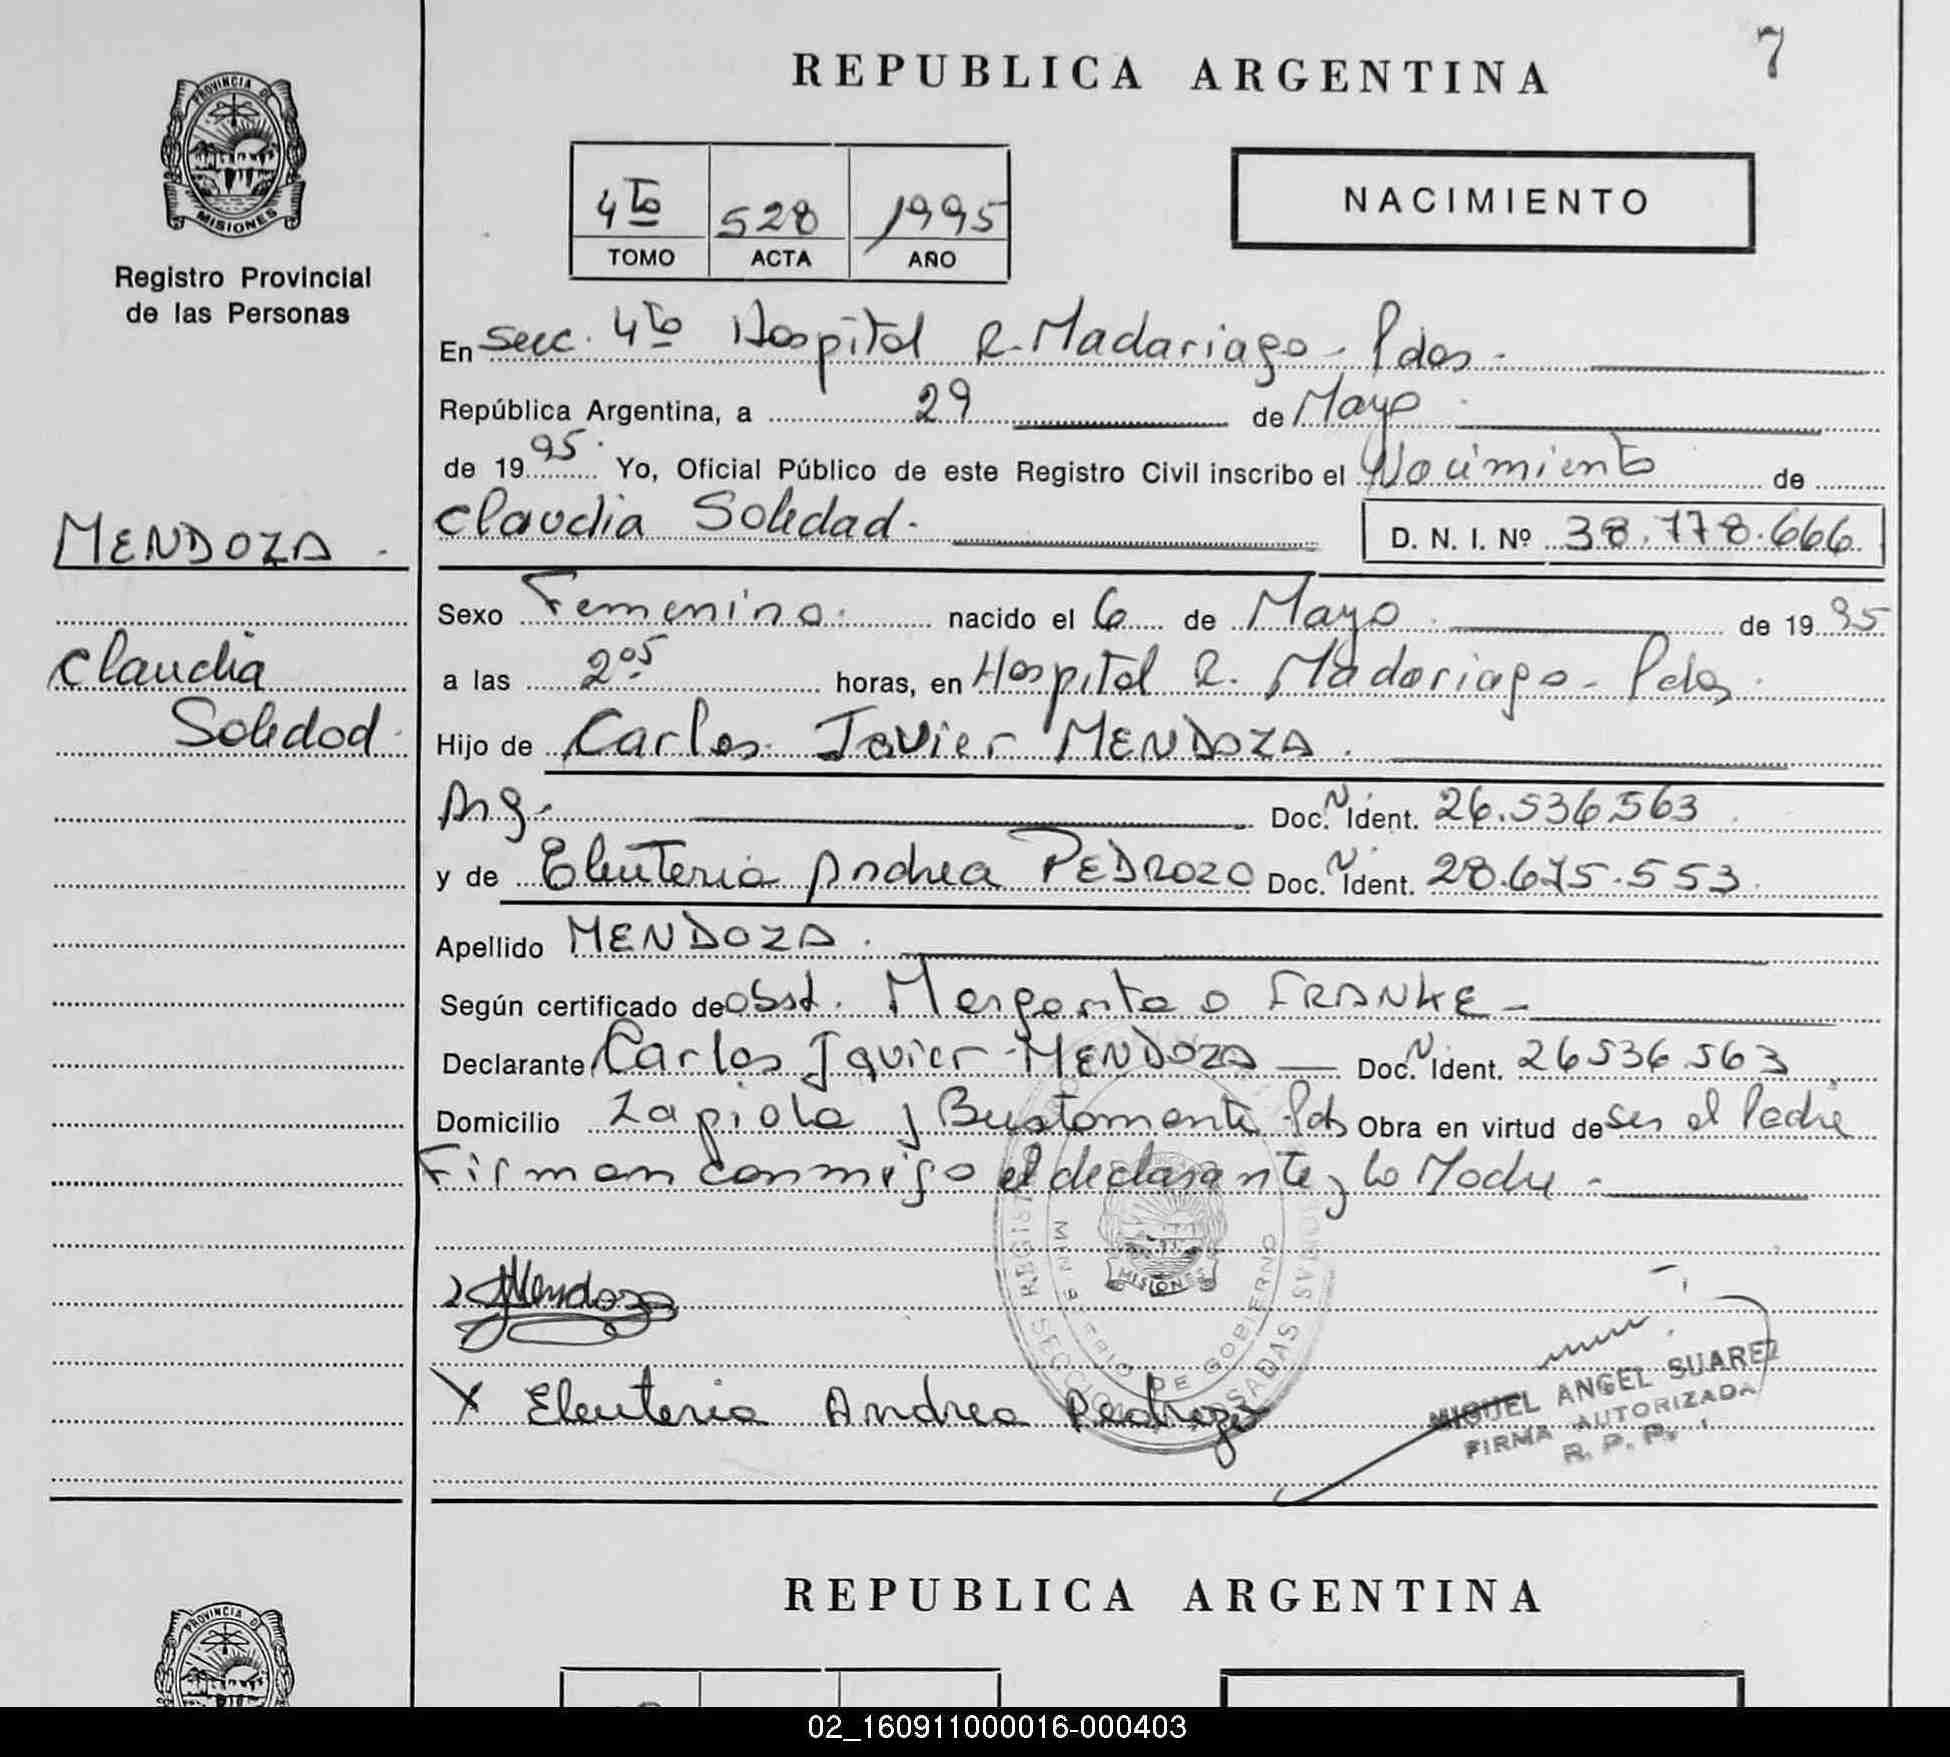 7
REPUBLICA ARGENTINA
PROVINCIA DE
MISIONES
Registro Provincial
de las Personas
4to 528 1995
TOMO ACTA AÑO
NACIMIENTO
En Secc. 4to Hospital R. Madariaga - Pdas -
República Argentina, a 29 de Mayo
de 1995. Yo, Oficial Público de este Registro Civil inscribo el Nacimiento de
Claudia Soledad. D. N. I. Nº 38.778.666
MENDOZA.
Claudia
Soledad.
Sexo Femenino. nacido el 6 de Mayo. de 1995
a las 2:05 horas, en Hospital R. Madariaga - Pdas.
Hijo de Carlos Javier MENDOZA.
Arg. Doc. N Ident. 26.536.563
y de Eleuteria Andrea PEDROZO Doc. N Ident. 28.675.553
Apellido MENDOZA.
Según certificado de obst. Margarita O FRANKE -
Declarante Carlos Javier MENDOZA Doc. N Ident. 26536.563
Domicilio Zapiola y Bustamante Pds Obra en virtud de ser el Padre
Firman conmigo el declarante y la Madre -
MISIONES
Mendoza
X Eleuteria Andrea Pedrozo
MIGUEL ANGEL SUAREZ
FIRMA AUTORIZADA
R. P. P.
REPUBLICA ARGENTINA
PROVINCIA DE
02_160911000016-000403